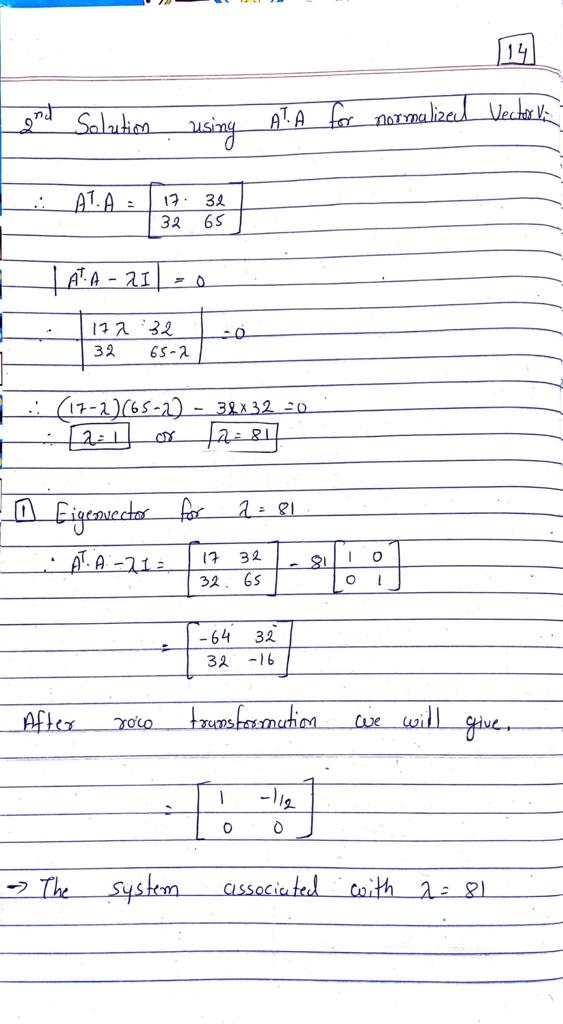 14
2nd Solution using Aᵀ.A for normalized Vector Vi-
∴ Aᵀ.A = [17. 32
32 65]
|Aᵀ.A - λI| = 0
∴ |17 λ 32
32 65-λ| = 0
∴ (17-λ)(65-λ) - 32×32 = 0
∴ λ=1 or λ=81
1 Eigenvector for λ = 81
∴ Aᵀ.A - λI = [17 32
32. 65] - 81 [1 0
0 1]
= [-64 32
32 -16]
After row transformation we will give,
= [1 -1/2
0 0]
→ The system associated with λ = 81